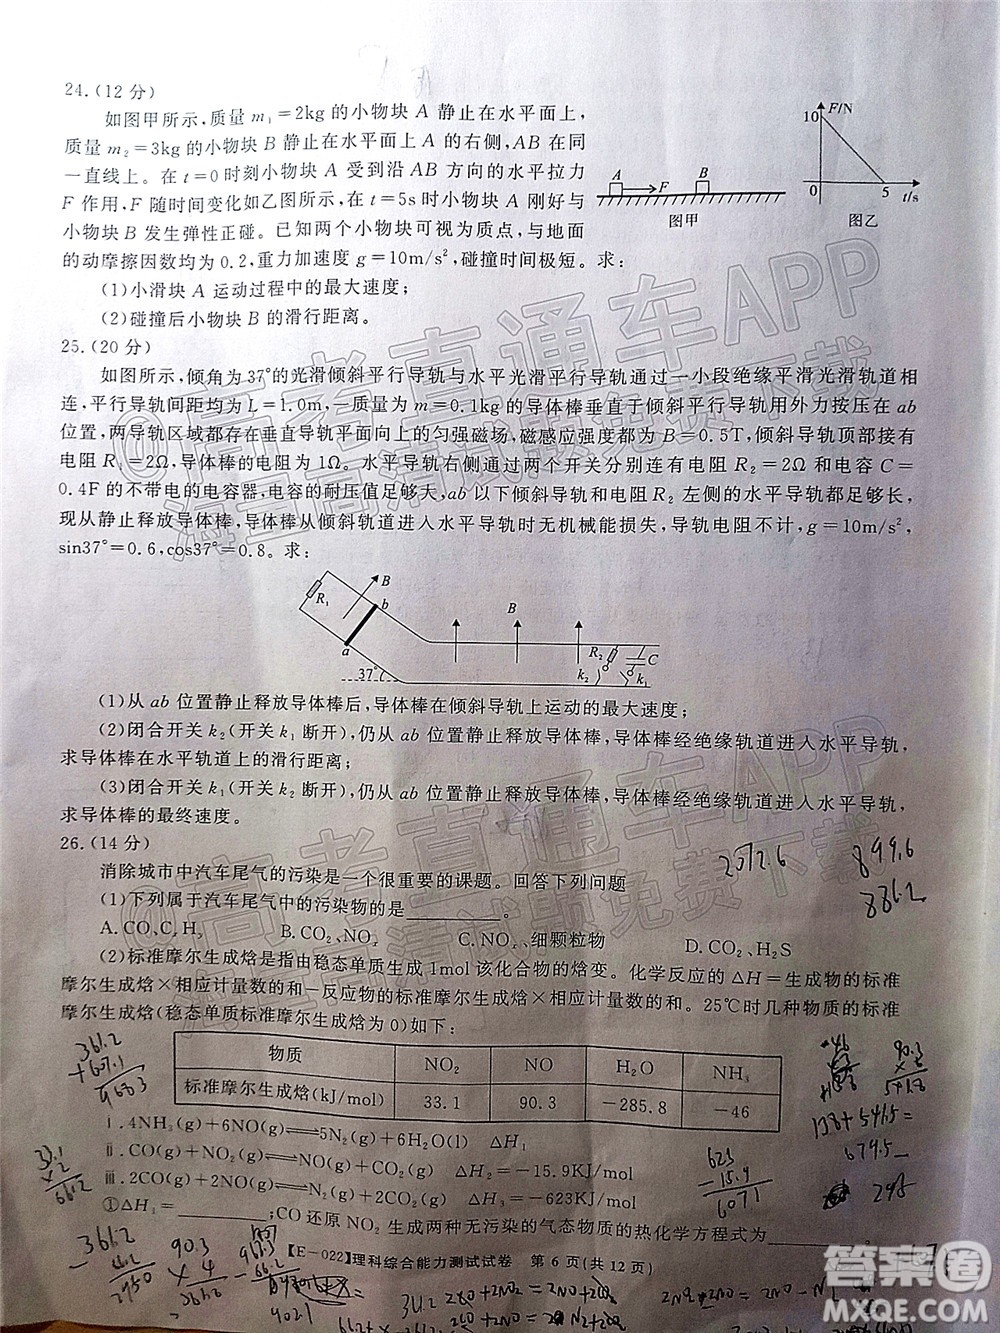 24.(12 分)
如图甲所示,质量 m₁=2kg 的小物块 A 静止在水平面上,
质量 m₂=3kg 的小物块 B 静止在水平面上 A 的右侧,AB 在同
一直线上。在 t=0 时刻小物块 A 受到沿 AB 方向的水平拉力
F 作用,F 随时间变化如乙图所示,在 t=5s 时小物块 A 刚好与
小物块 B 发生弹性正碰。已知两个小物块可视为质点,与地面
的动摩擦因数均为 0.2,重力加速度 g=10m/s²,碰撞时间极短。求:
A
F
B
图甲
F/N
10
0
5
t/s
图乙
(1)小滑块 A 运动过程中的最大速度;
(2)碰撞后小物块 B 的滑行距离。
25.(20 分)
如图所示,倾角为37°的光滑倾斜平行导轨与水平光滑平行导轨通过一小段绝缘平滑光滑轨道相
连,平行导轨间距均为 L=1.0m,一质量为 m=0.1kg 的导体棒垂直于倾斜平行导轨用外力按压在 ab
位置,两导轨区域都存在垂直导轨平面向上的匀强磁场,磁感应强度都为 B=0.5T,倾斜导轨顶部接有
电阻 R₁=2Ω,导体棒的电阻为 1Ω。水平导轨右侧两个开关分别连有电阻 R₂=2Ω 和电容 C=
0.4F 的不带电的电容器,电容的耐压值足够大,ab 以下倾斜导轨和电阻 R₂ 左侧的水平导轨都足够长,
现从静止释放导体棒,导体棒从倾斜轨道进入水平导轨时无机械能损失,导轨电阻不计,g=10m/s²,
sin37°=0.6,cos37°=0.8。求:
R₁
B
b
a
37°
B
R₂
C
k₂
k₁
(1)从 ab 位置静止释放导体棒后,导体棒在倾斜导轨上运动的最大速度;
(2)闭合开关 k₂(开关 k₁ 断开),仍从 ab 位置静止释放导体棒,导体棒经绝缘轨道进入水平导轨,
求导体棒在水平轨道上的滑行距离;
(3)闭合开关 k₁(开关 k₂ 断开),仍从 ab 位置静止释放导体棒,导体棒经绝缘轨道进入水平导轨,
求导体棒的最终速度。
26.(14 分)
消除城市中汽车尾气的污染是一个很重要的课题。回答下列问题
(1)下列属于汽车尾气中的污染物的是________。
A.CO、CₓHᵧ B.CO₂、NOₓ C.NOₓ、细颗粒物 D.CO₂、H₂S
(2)标准摩尔生成焓是指由稳态单质生成 1mol 该化合物的焓变。化学反应的 ΔH=生成物的标准
摩尔生成焓×相应计量数的和-反应物的标准摩尔生成焓×相应计量数的和。25℃时几种物质的标准
摩尔生成焓(稳态单质标准摩尔生成焓为 0)如下:
物质 NO₂ NO H₂O NH₃
标准摩尔生成焓(kJ/mol) 33.1 90.3 -285.8 -46
ⅰ.4NH₃(g)+6NO(g)⇌5N₂(g)+6H₂O(l) ΔH₁
ⅱ.CO(g)+NO₂(g)⇌NO(g)+CO₂(g) ΔH₂=-15.9KJ/mol
ⅲ.2CO(g)+2NO(g)⇌N₂(g)+2CO₂(g) ΔH₃=-623KJ/mol
①ΔH₁=________;CO 还原 NO₂ 生成两种无污染的气态物质的热化学方程式为________
【E-022】理科综合能力测试试卷 第 6 页(共 12 页)
2072.6
899.6
886.2
361.2
+607.1
968.3
33.1
×2
66.2
623
-15.9
6071
@高考直通车APP
海量高清试题免费下载
@高考直通车APP
海量高清试题免费下载
答案圈
MXQE.COM